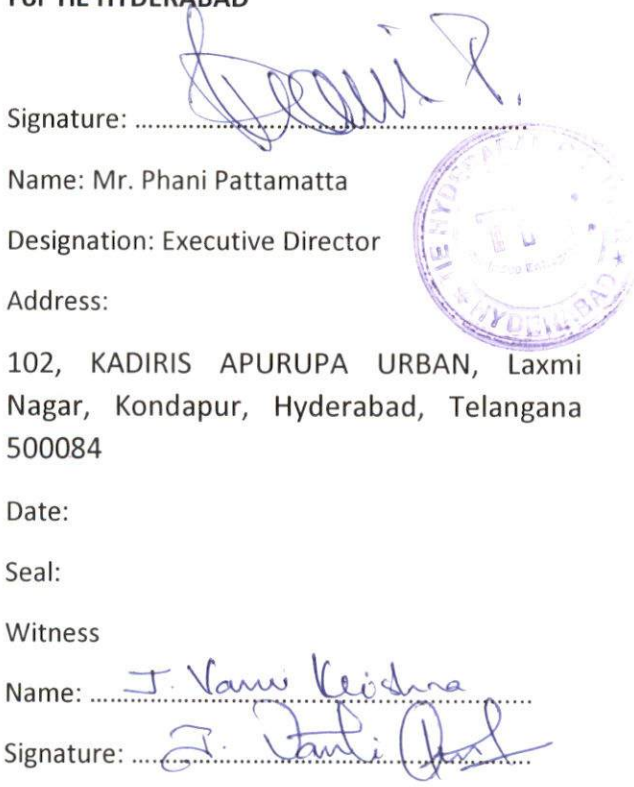 For TIE HYDERABAD
Signature: ..........................................................
Name: Mr. Phani Pattamatta
Designation: Executive Director
TIE HYDERABAD
HYDERABAD
Address:
102, KADIRIS APURUPA URBAN, Laxmi
Nagar, Kondapur, Hyderabad, Telangana
500084
Date:
Seal:
Witness
Name: J. Vamsi Krishna
Signature: J. Vamsi